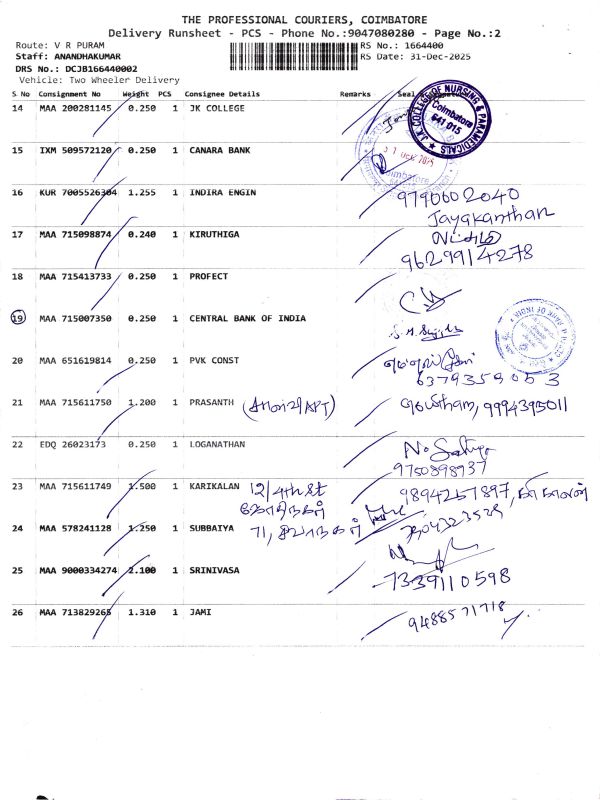 THE PROFESSIONAL COURIERS, COIMBATORE
Delivery Runsheet - PCS - Phone No.:9047080280 - Page No.:2
Route: V R PURAM
RS No.: 1664400
Staff: ANANDHAKUMAR
RS Date: 31-Dec-2025
DRS No.: DCJB166440002
Vehicle: Two Wheeler Delivery
S No Consignment No Weight PCS Consignee Details Remarks Seal
14 MAA 200281145 0.250 1 JK COLLEGE
J.K. COLLEGE OF NURSING & PARAMEDICALS
Coimbatore
641 015
15 IXM 509572120 0.250 1 CANARA BANK
Coimbatore
16 KUR 7005526304 1.255 1 INDIRA ENGIN
9790602040
Jayakanthan
17 MAA 715098874 0.240 1 KIRUTHIGA
9629914278
18 MAA 715413733 0.250 1 PROFECT
19 MAA 715007350 0.250 1 CENTRAL BANK OF INDIA
20 MAA 651619814 0.250 1 PVK CONST
6379359053
21 MAA 715611750 1.200 1 PRASANTH
9994395011
22 EDQ 26023173 0.250 1 LOGANATHAN
9750898937
23 MAA 715611749 1.500 1 KARIKALAN 12/4th st
9894257897,
24 MAA 578241128 1.250 1 SUBBAIYA 71,
25 MAA 9000334274 2.100 1 SRINIVASA
7339110598
26 MAA 713829265 1.310 1 JAMI
9488571718